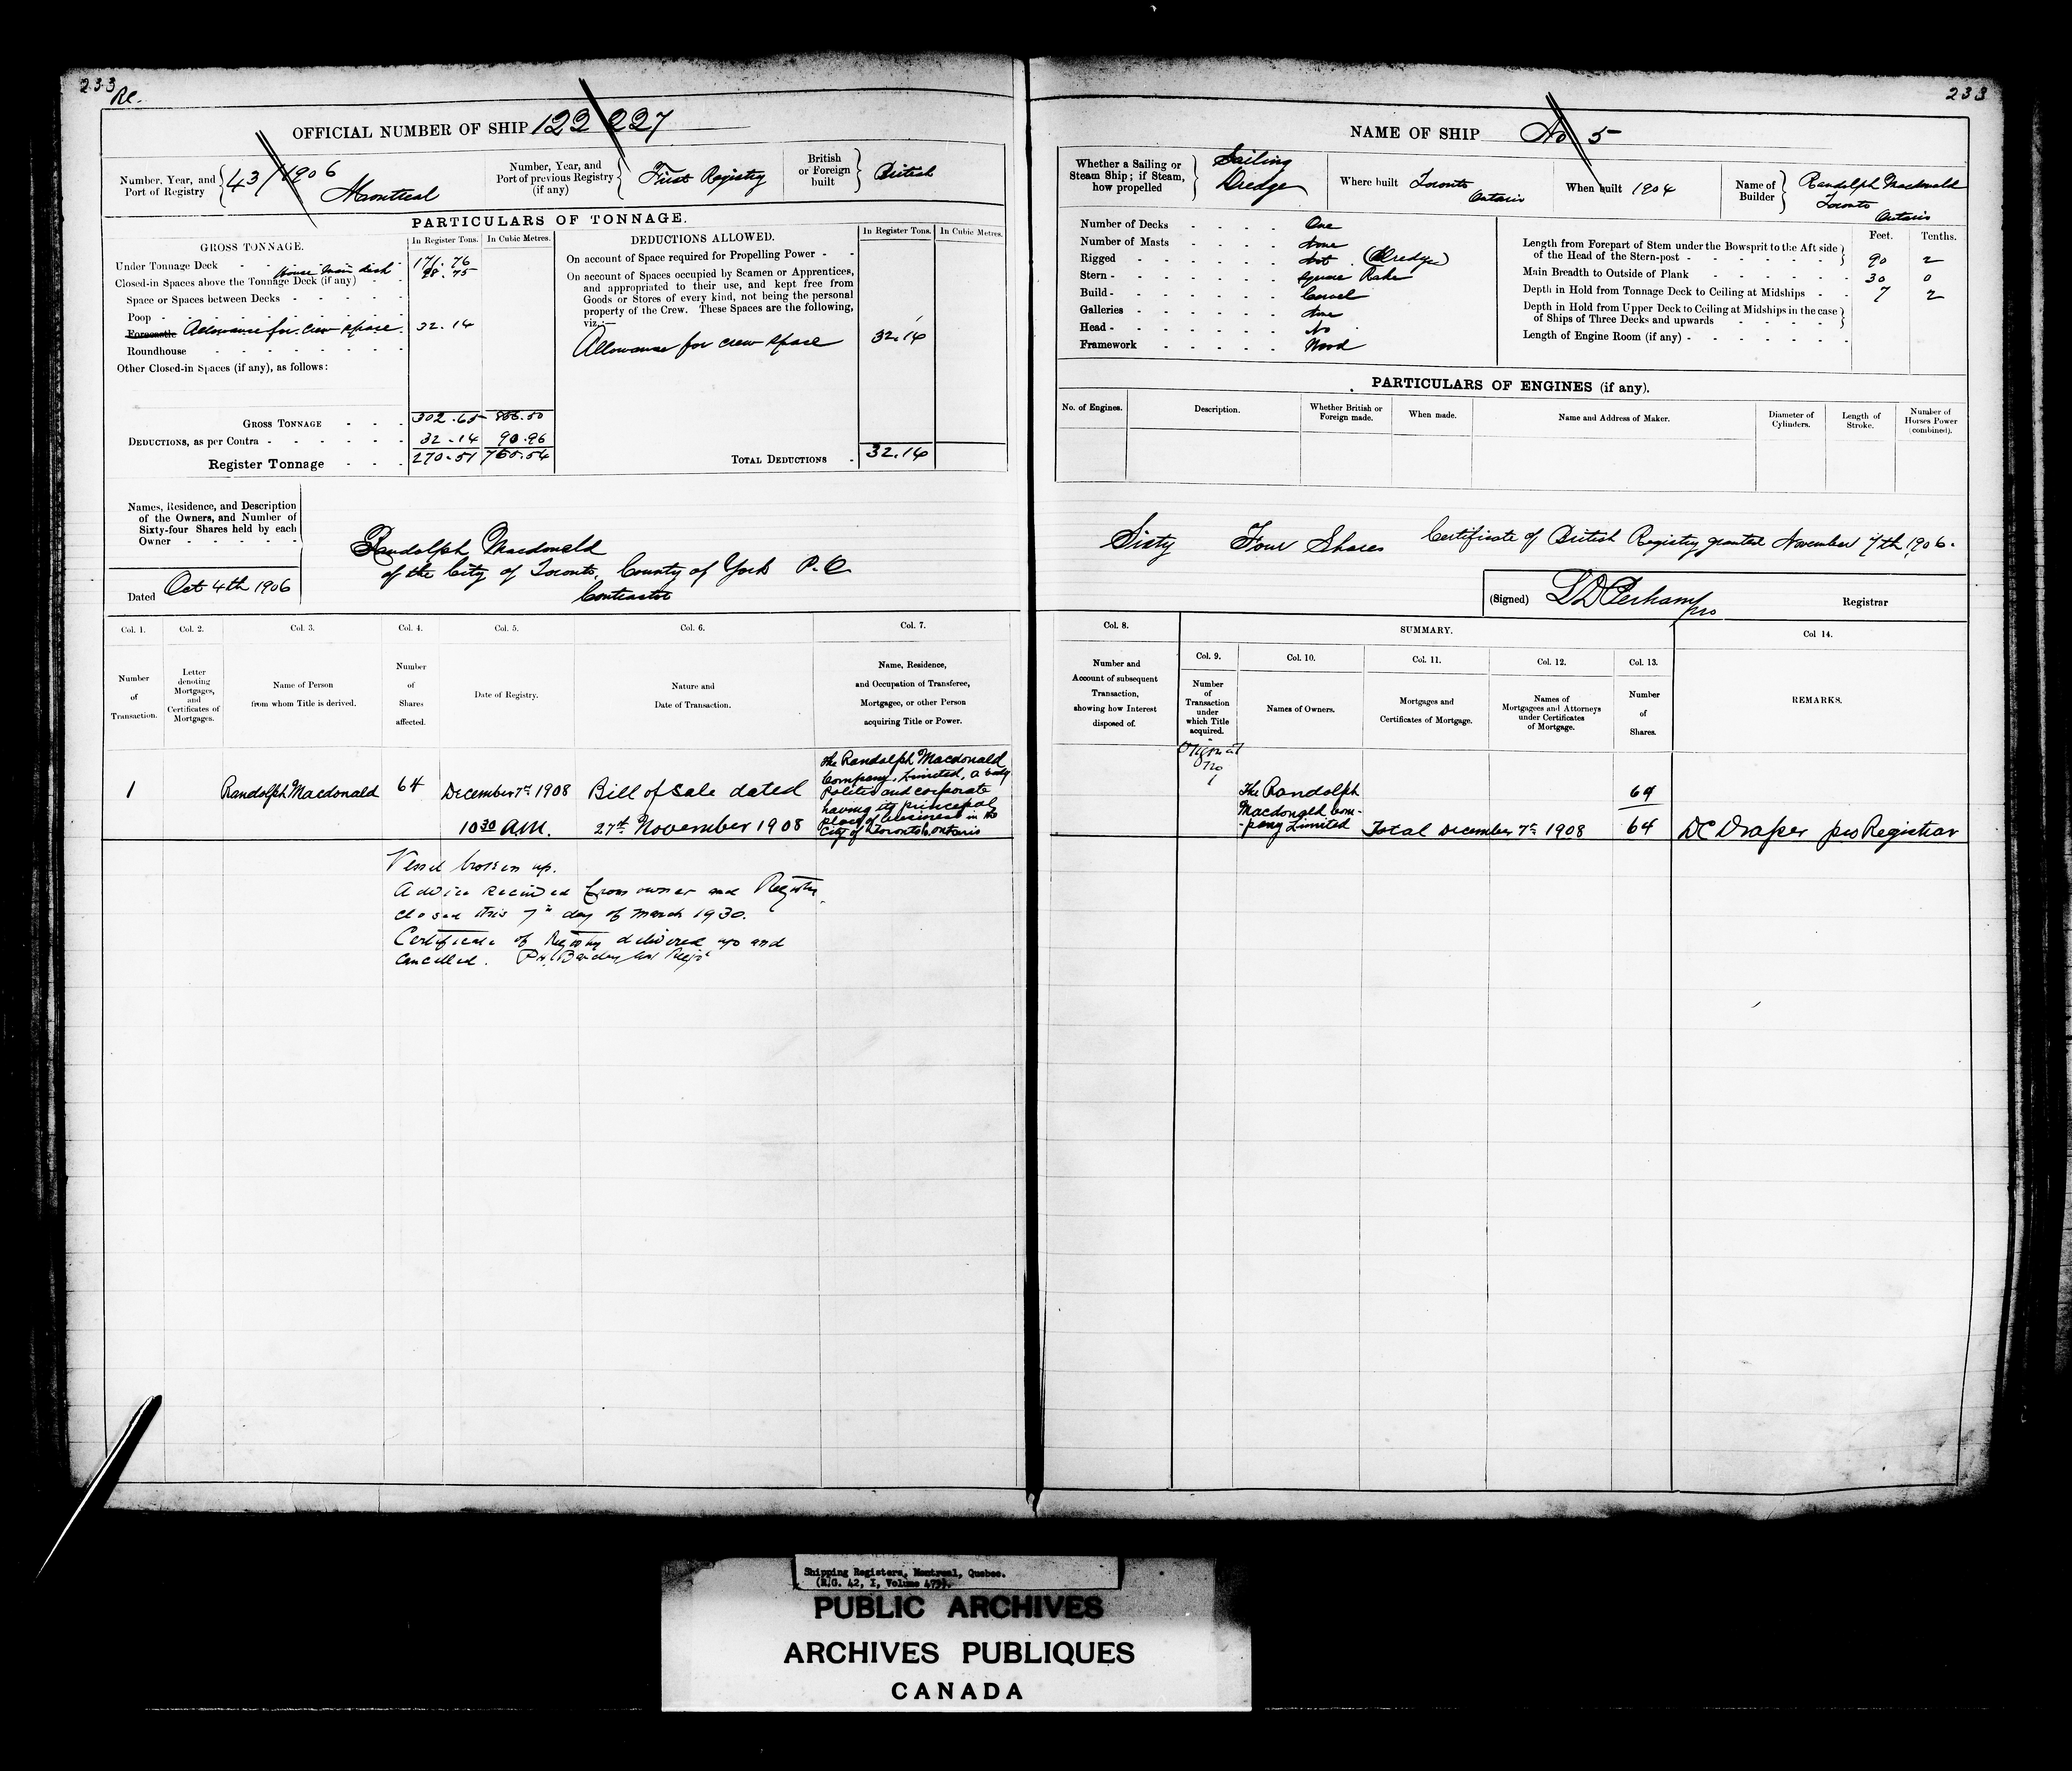 233
Re.
OFFICIAL NUMBER OF SHIP 122 227
Number, Year, and Port of Registry 43/1906 Montreal
Number, Year, and Port of previous Registry (if any) First Registry
British or Foreign built British
PARTICULARS OF TONNAGE.
GROSS TONNAGE.
In Register Tons. In Cubic Metres.
Under Tonnage Deck - - 171.76
House main deck
Closed-in Spaces above the Tonnage Deck (if any) - - 98.75
Space or Spaces between Decks - - - - -
Poop - - - - - - - -
Forecastle Allowance for crew space. 32.14
Roundhouse - - - - - - -
Other Closed-in Spaces (if any), as follows:
GROSS TONNAGE - - - 302.65 856.50
DEDUCTIONS, as per Contra - - - - - 32.14 90.96
Register Tonnage - - - 270.51 765.54
DEDUCTIONS ALLOWED.
In Register Tons. In Cubic Metres.
On account of Space required for Propelling Power - -
On account of Spaces occupied by Seamen or Apprentices,
and appropriated to their use, and kept free from
Goods or Stores of every kind, not being the personal
property of the Crew. These Spaces are the following,
viz.:—
Allowance for crew space 32.14
TOTAL DEDUCTIONS - 32.14
Names, Residence, and Description
of the Owners, and Number of
Sixty-four Shares held by each
Owner - - - - -
Dated Oct 4th 1906
Randolph Macdonald
of the City of Toronto, County of York P.O.
Contractor
Col. 1. Col. 2. Col. 3. Col. 4. Col. 5. Col. 6. Col. 7.
Number of Transaction.
Letter denoting Mortgages, and Certificates of Mortgages.
Name of Person from whom Title is derived.
Number of Shares affected.
Date of Registry.
Nature and Date of Transaction.
Name, Residence, and Occupation of Transferee, Mortgagee, or other Person acquiring Title or Power.
1 Randolph Macdonald 64 December 7th 1908 Bill of Sale dated
10 30 AM. 27th November 1908
the Randolph Macdonald
Company, Limited, a body
Politic and corporate
having its principal
place of business in the
City of Toronto, Ontario
Vessel broken up.
Advice received from owner and Registry
closed this 7th day of March 1930.
Certificate of Registry delivered up and
cancelled.
233
NAME OF SHIP No 5
Whether a Sailing or Steam Ship; if Steam, how propelled Sailing Dredge
Where built Toronto Ontario
When built 1904
Name of Builder Randolph Macdonald Toronto Ontario
Number of Decks - - - - One
Number of Masts - - - - None
Rigged - - - - - Not (Dredge)
Stern - - - - - - Square Rake
Build - - - - - - Carvel
Galleries - - - - - None
Head - - - - - - No
Framework - - - - - Wood
Feet. Tenths.
Length from Forepart of Stem under the Bowsprit to the Aft side
of the Head of the Stern-post - - - - - 90 2
Main Breadth to Outside of Plank - - - - - 30 0
Depth in Hold from Tonnage Deck to Ceiling at Midships - - 7 2
Depth in Hold from Upper Deck to Ceiling at Midships in the case
of Ships of Three Decks and upwards - - - - -
Length of Engine Room (if any) - - - - - -
PARTICULARS OF ENGINES (if any).
No. of Engines. Description. Whether British or Foreign made. When made. Name and Address of Maker. Diameter of Cylinders. Length of Stroke. Number of Horses Power (combined).
Sixty Four Shares Certificate of British Registry granted November 7th, 1906.
(Signed) pro Registrar
Col. 8. SUMMARY. Col 14.
Col. 9. Col. 10. Col. 11. Col. 12. Col. 13.
Number and Account of subsequent Transaction, showing how Interest disposed of.
Number of Transaction under which Title acquired.
Names of Owners.
Mortgages and Certificates of Mortgage.
Names of Mortgagees and Attorneys under Certificates of Mortgage.
Number of Shares.
REMARKS.
Original
No
1
The Randolph 64
Macdonald Com-
-pany Limited Total December 7th 1908 64 DC Draper pro Registrar
Shipping Registers, Montreal, Quebec.
(R.G. 42, I, Volume 479).
PUBLIC ARCHIVES
ARCHIVES PUBLIQUES
CANADA